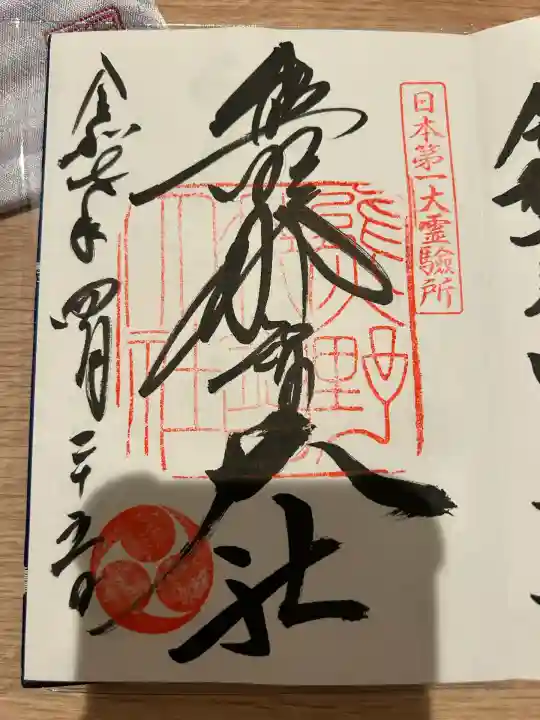 日本第一大霊験所
熊野那智大社
熊野
那智
大社
令和七年四月二十五日